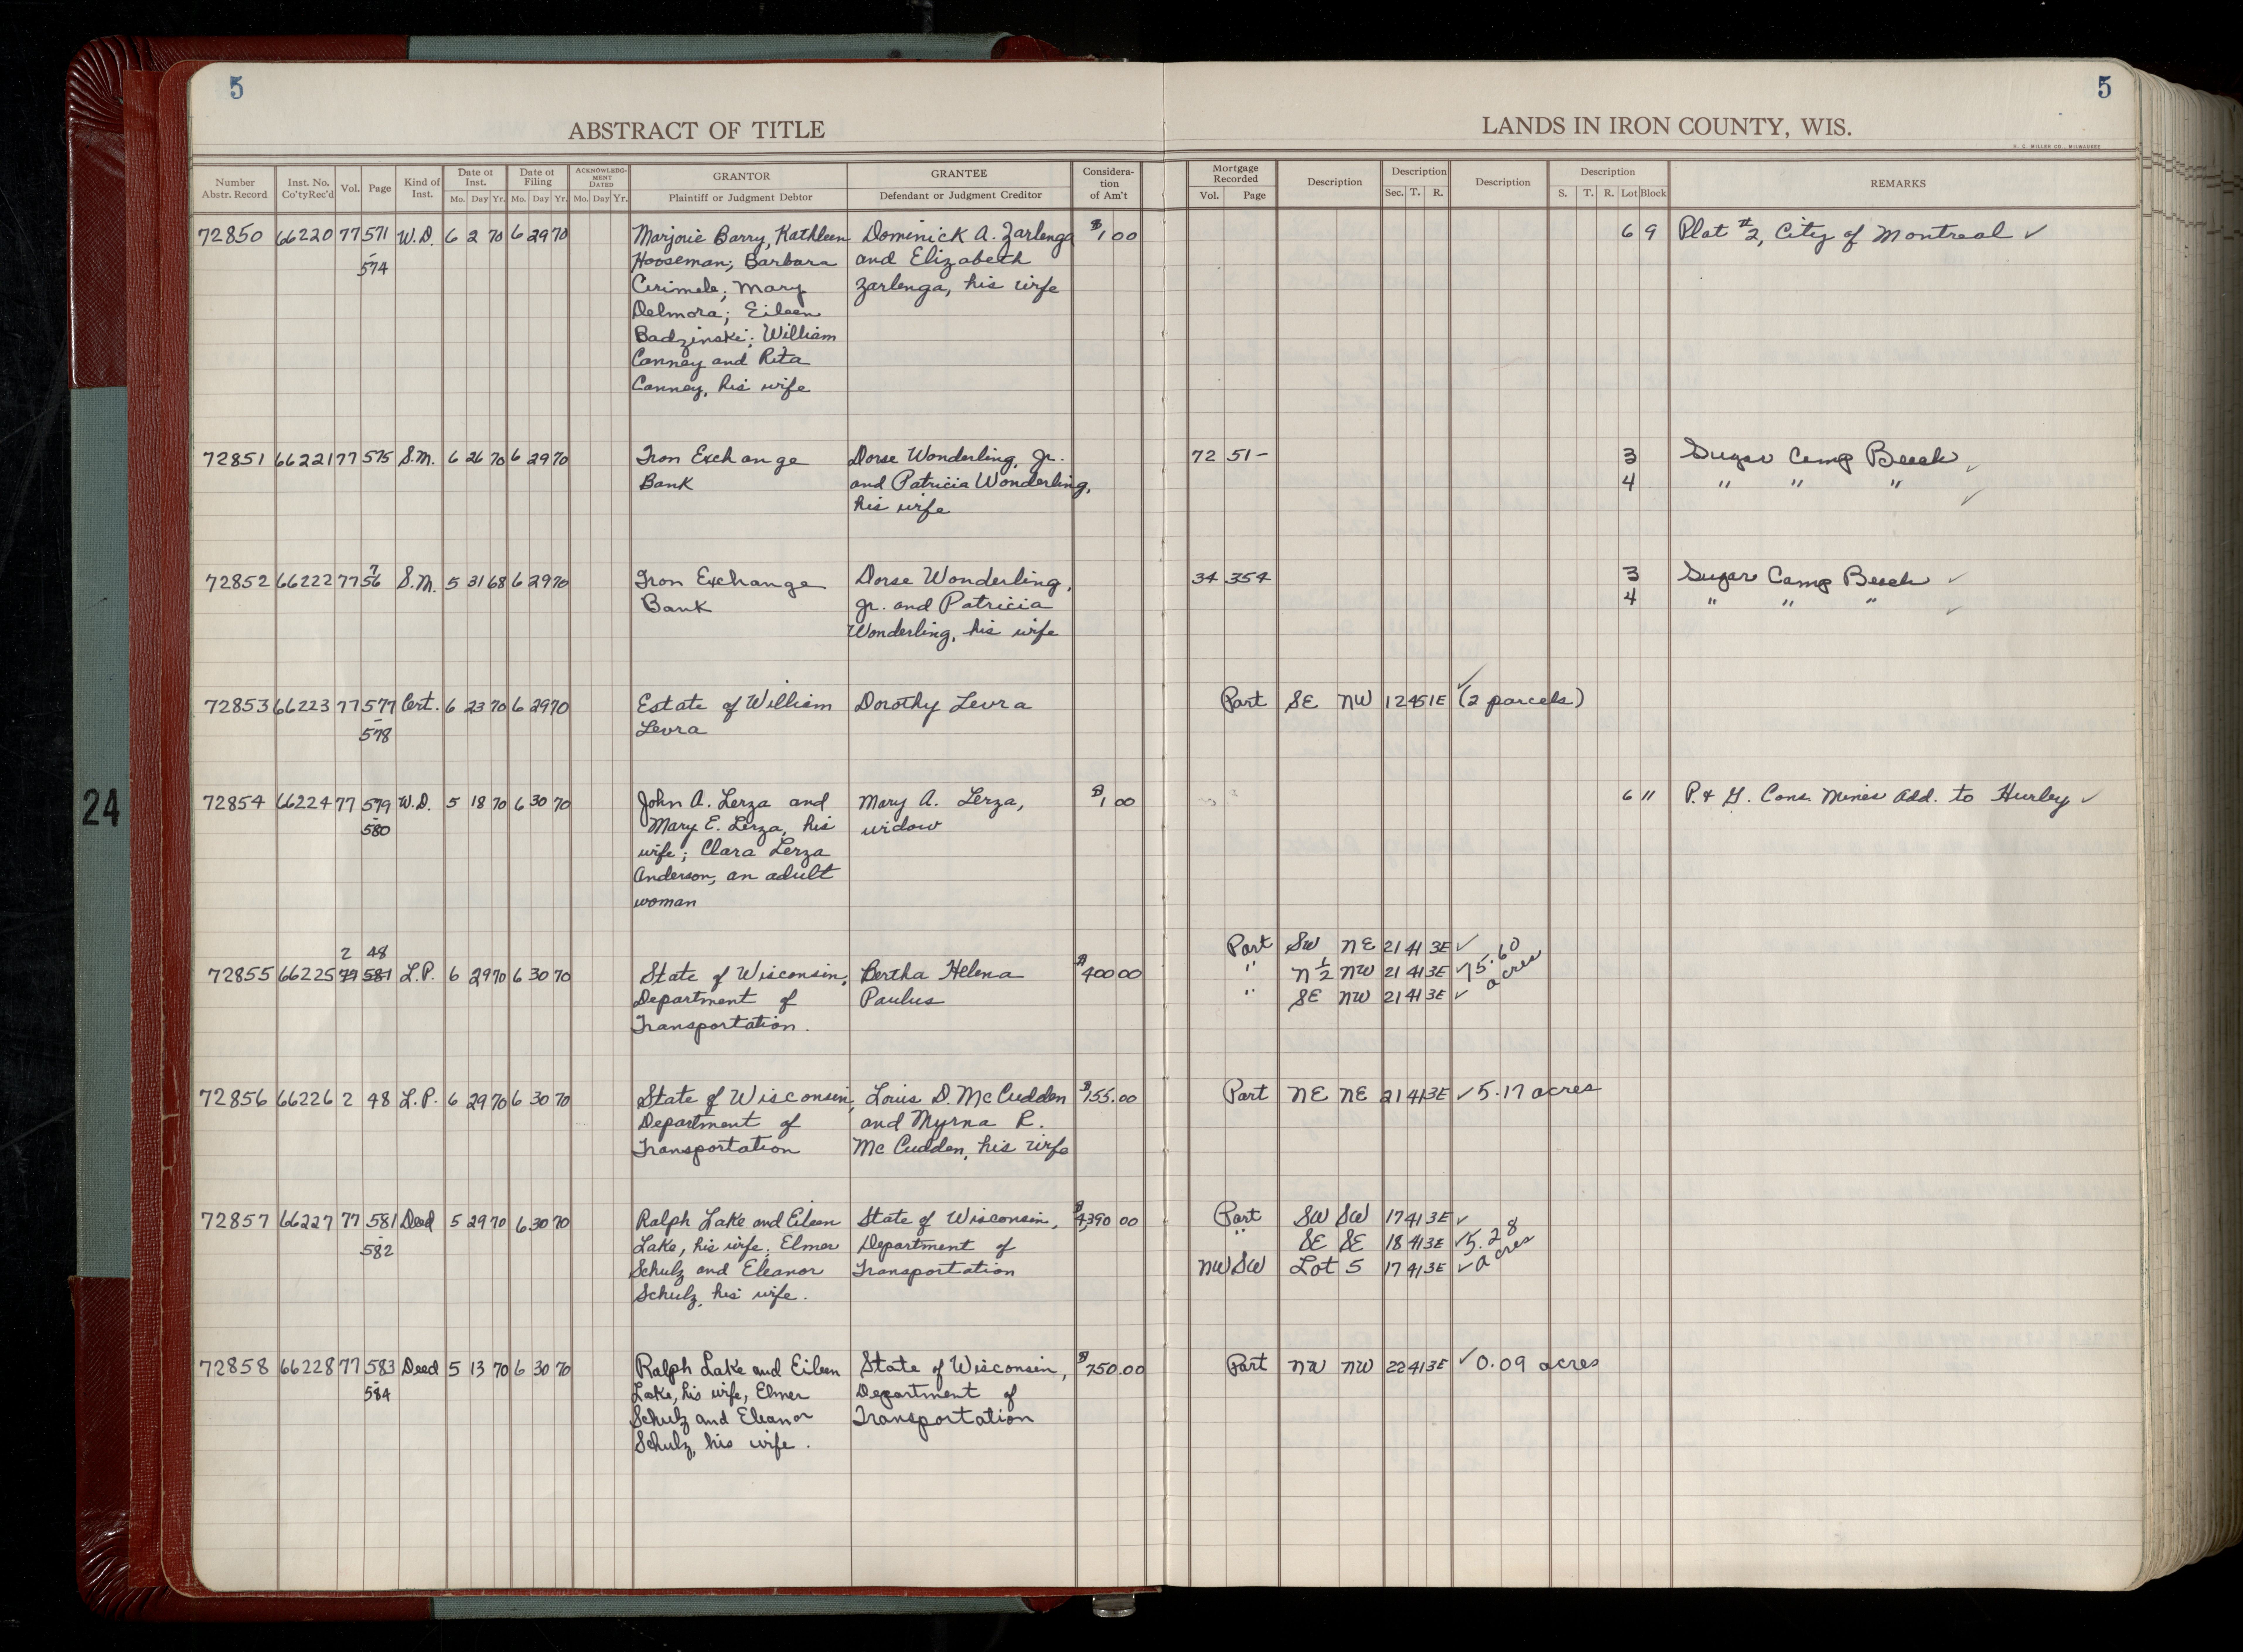 5
5
ABSTRACT OF TITLE
LANDS IN IRON COUNTY, WIS.
H. C. MILLER CO., MILWAUKEE
Number Abstr. Record Inst. No. Co'tyRec'd Vol. Page Kind of Inst. Date of Inst. Mo. Day Yr. Date of Filing Mo. Day Yr. ACKNOWLEDG-MENT DATED Mo. Day Yr. GRANTOR Plaintiff or Judgment Debtor GRANTEE Defendant or Judgment Creditor Considera-tion of Am't Mortgage Recorded Vol. Page Description Description Sec. T. R. Description Description S. T. R. Lot Block REMARKS
72850 66220 77 571 W.D. 6 2 70 6 29 70 Marjorie Barry, Kathleen Dominick A. Zarlenga $1 00 6 9 Plat #2, City of Montreal ✓
- 574 Hooseman; Barbara and Elizabeth
Cerimele; Mary Zarlenga, his wife
Delmora; Eileen
Badzinski; William
Canney and Rita
Canney, his wife
72851 66221 77 575 S.M. 6 26 70 6 29 70 Iron Exchange Dorse Wonderling, Jr. 72 51- 3 Sugar Camp Beach ✓
Bank and Patricia Wonderling, 4 " " " ✓
his wife
72852 66222 77 7
56 S.M. 5 31 68 6 29 70 Iron Exchange Dorse Wonderling, 34 354 3 Sugar Camp Beach ✓
Bank Jr. and Patricia 4 " " " ✓
Wonderling, his wife
72853 66223 77 577 Cert. 6 23 70 6 29 70 Estate of William Dorothy Levra Part SE NW 12 45 1E ✓ (2 parcels)
- 578 Levra
72854 66224 77 579 W.D. 5 18 70 6 30 70 John A. Lerza and Mary A. Lerza, $1 00 6 11 P. & G. Cons. Mines Add. to Hurley ✓
- 580 Mary E. Lerza, his widow
wife; Clara Lerza
Anderson, an adult
woman
2 48 Part SW NE 21 41 3E ✓
72855 66225 77 581 L.P. 6 29 70 6 30 70 State of Wisconsin, Bertha Helena $400 00 " N½ NW 21 41 3E ✓ 5.60
Department of Paulus " SE NW 21 41 3E ✓ acres
Transportation.
72856 66226 2 48 L.P. 6 29 70 6 30 70 State of Wisconsin, Louis D. McCudden $755.00 Part NE NE 21 41 3E ✓ 5.17 acres
Department of and Myrna R.
Transportation McCudden, his wife
72857 66227 77 581 Deed 5 29 70 6 30 70 Ralph Lake and Eileen State of Wisconsin, $4,390 00 Part SW SW 17 41 3E ✓
- 582 Lake, his wife; Elmer Department of " SE SE 18 41 3E ✓ 5.28
Schulz and Eleanor Transportation NW SW Lot 5 17 41 3E ✓ acres
Schulz, his wife.
72858 66228 77 583 Deed 5 13 70 6 30 70 Ralph Lake and Eileen State of Wisconsin, $750.00 Part NW NW 22 41 3E ✓ 0.09 acres
- 584 Lake, his wife, Elmer Department of
Schulz and Eleanor Transportation
Schulz, his wife.
24